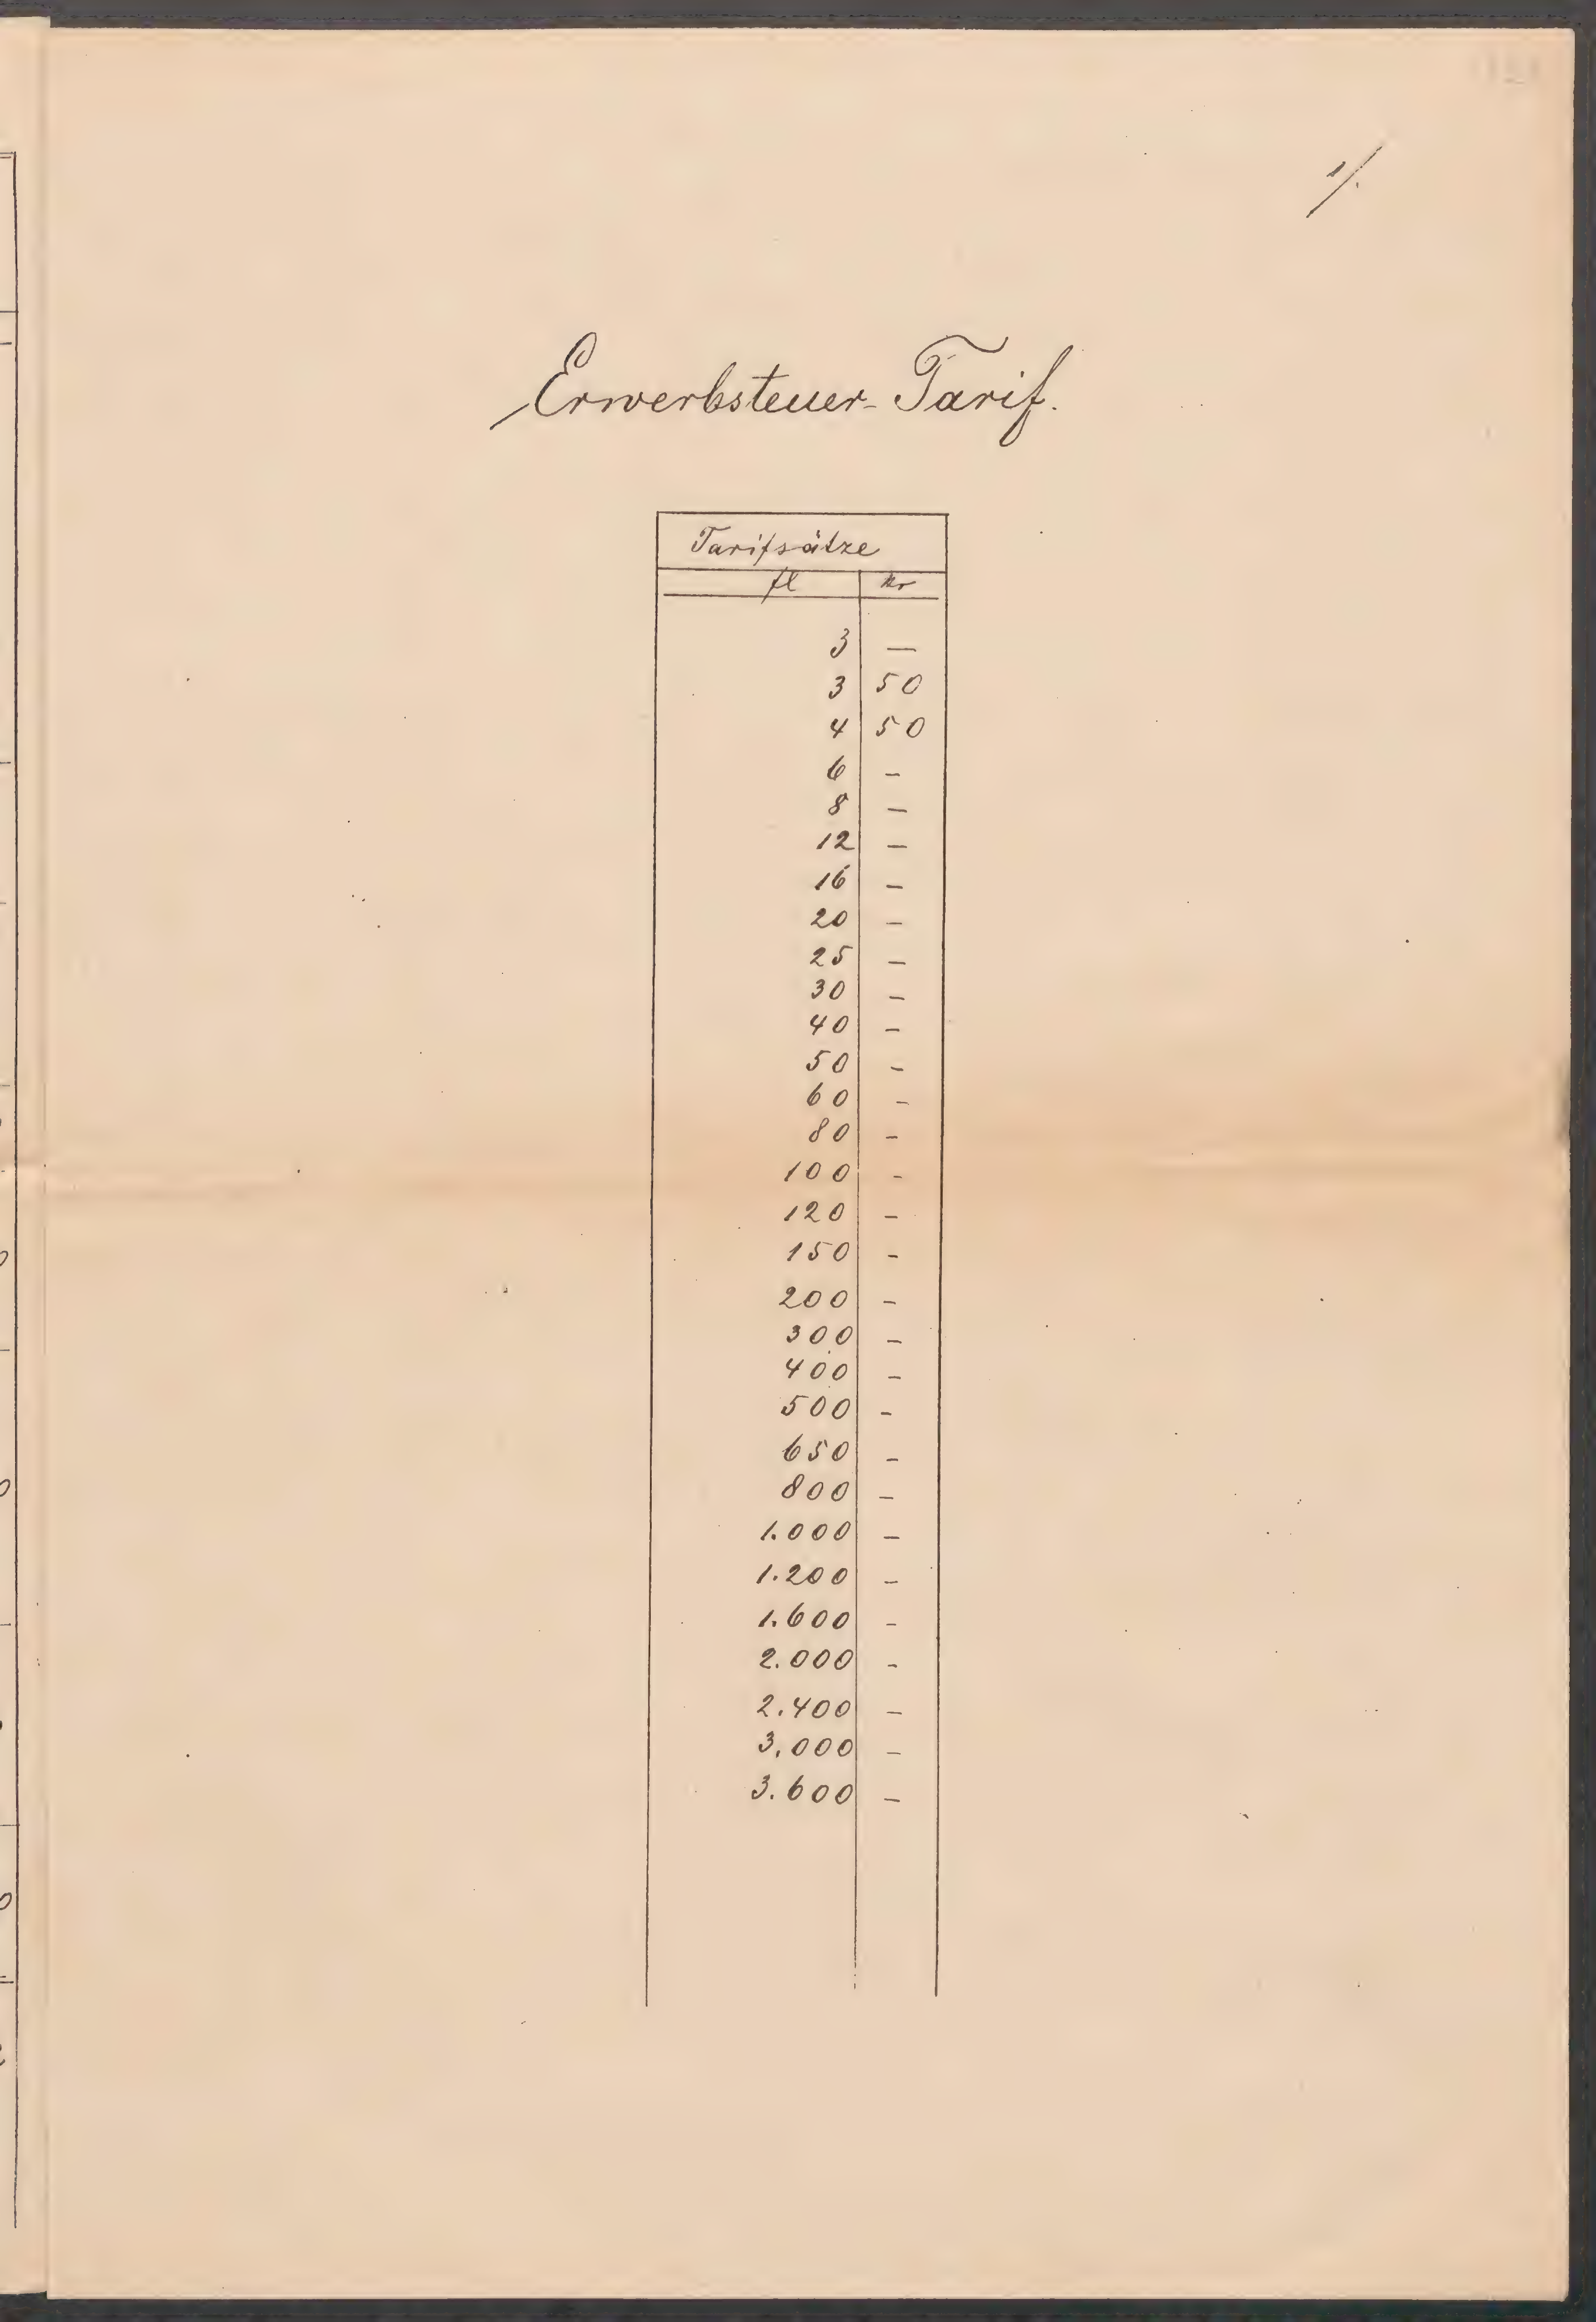 1/.
Erwerbsteuer-Tarif.
Tarifsätze
fl kr
3 —
3 50
4 50
6 –
8 –
12 –
16 –
20 –
25 –
30 –
40 –
50 –
60 –
80 –
100 –
120 –
150 –
200 –
300 –
400 –
500 –
650 –
800 –
1.000 –
1.200 –
1.600 –
2.000 –
2.400 –
3.000 –
3.600 –